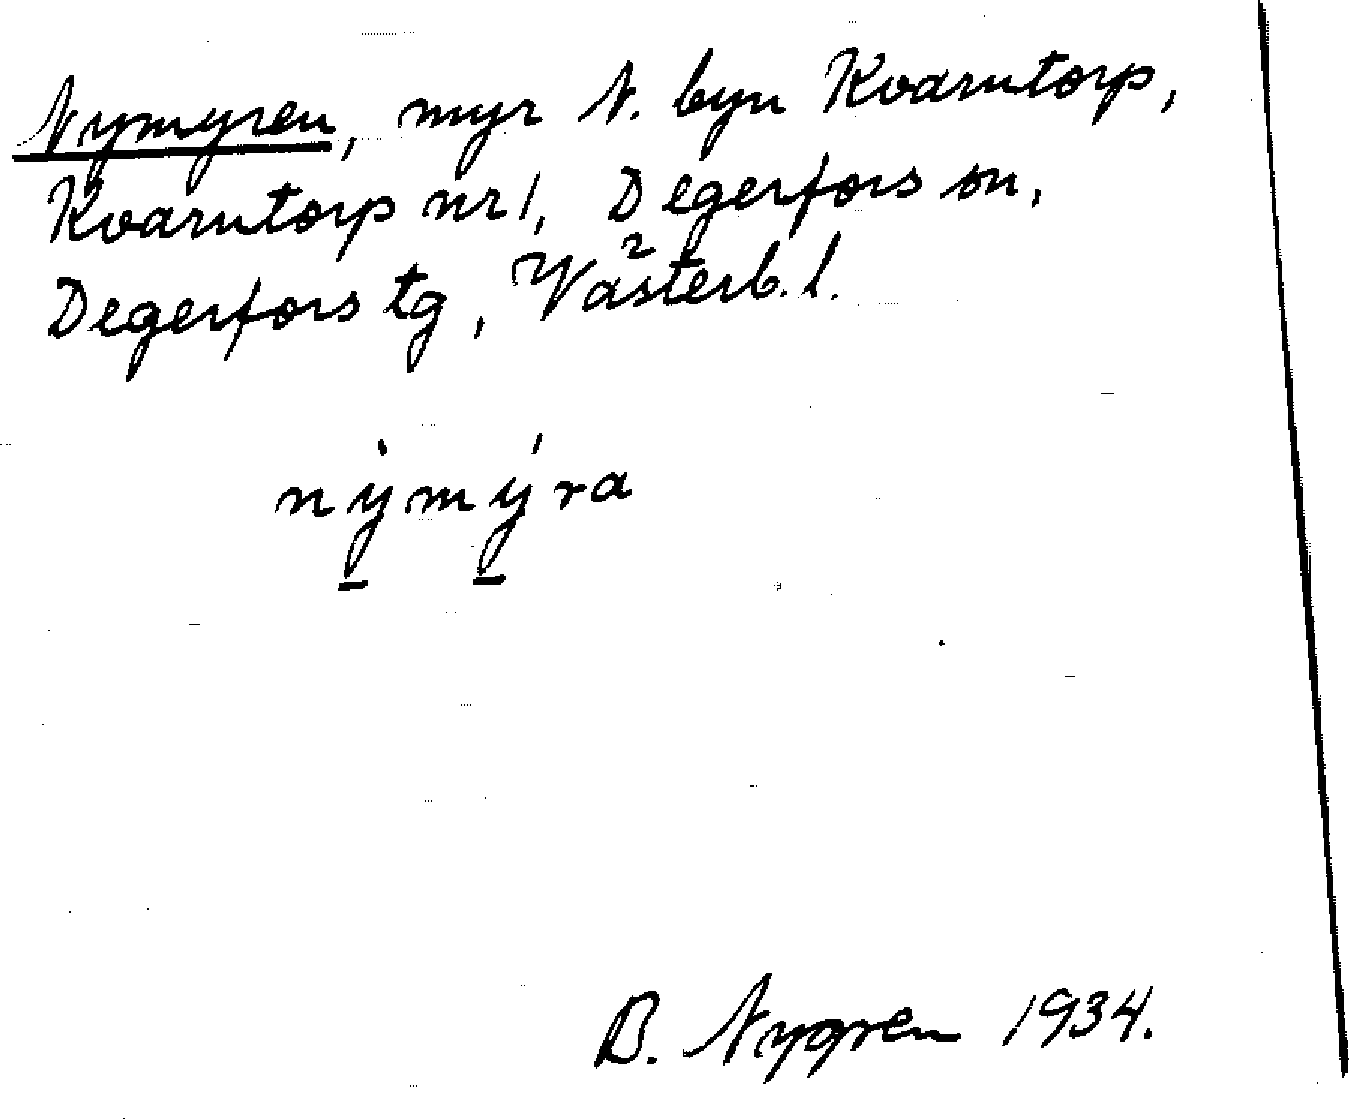 Nymyren, myr N. byn Kvarntorp,
Kvarntorp nr 1, Degerfors sn,
Degerfors tg, Västerb. l.
nymyra
B. Nygren 1934.